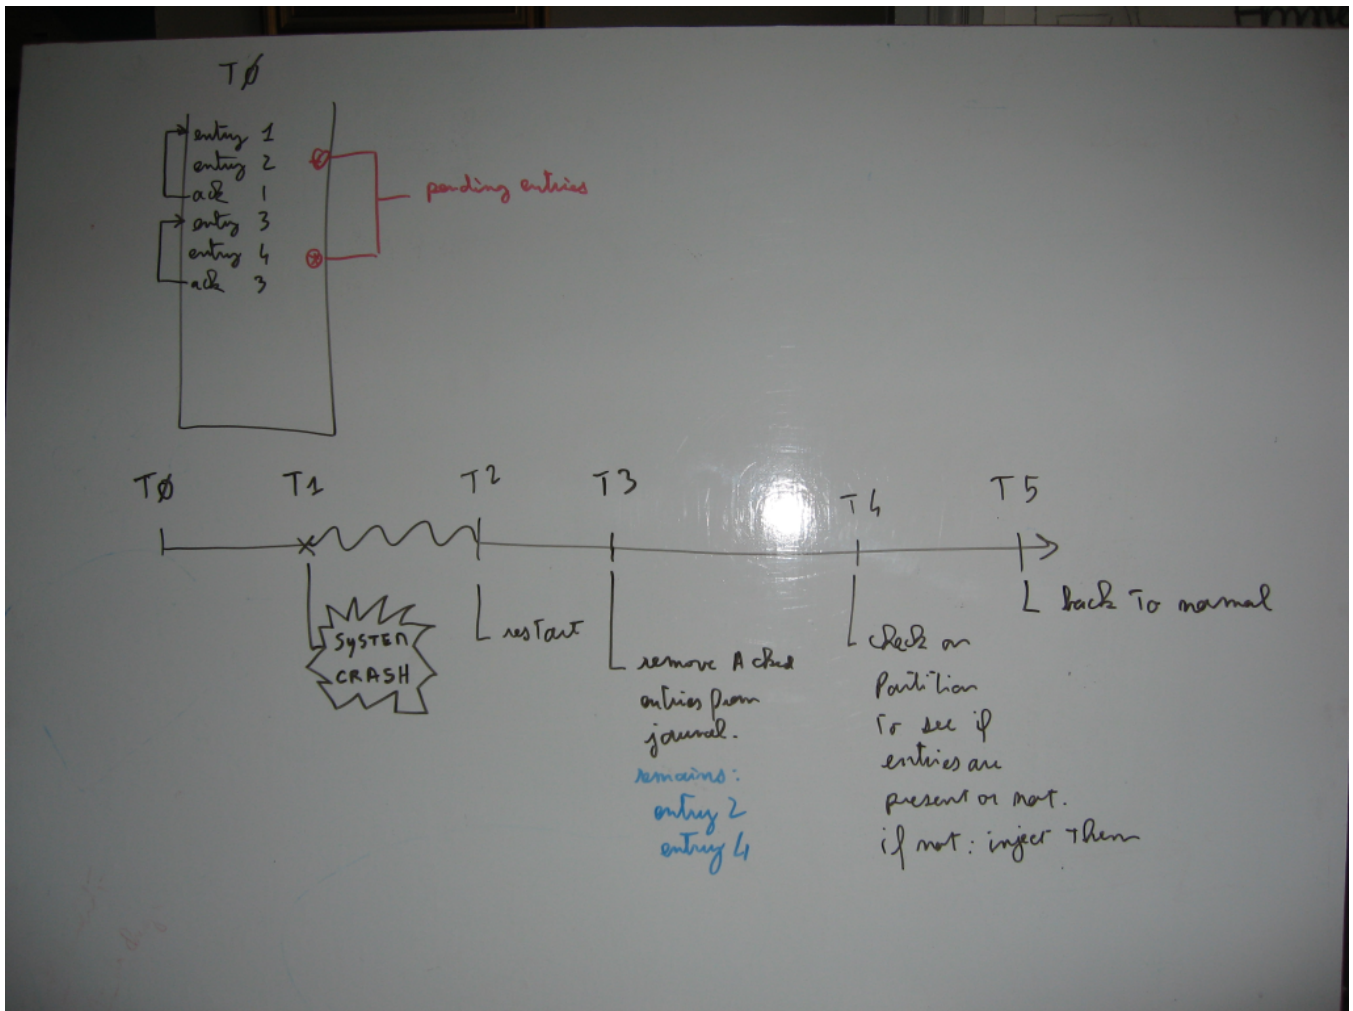 TØ
entry 1
entry 2
ack 1
entry 3
entry 4
ack 3
pending entries
TØ
T1
T2
T3
T4
T5
SYSTEM
CRASH
restart
remove Acked
entries from
journal.
remains:
entry 2
entry 4
check on
Partition
To see if
entries are
present or not.
if not: inject Them
back To normal